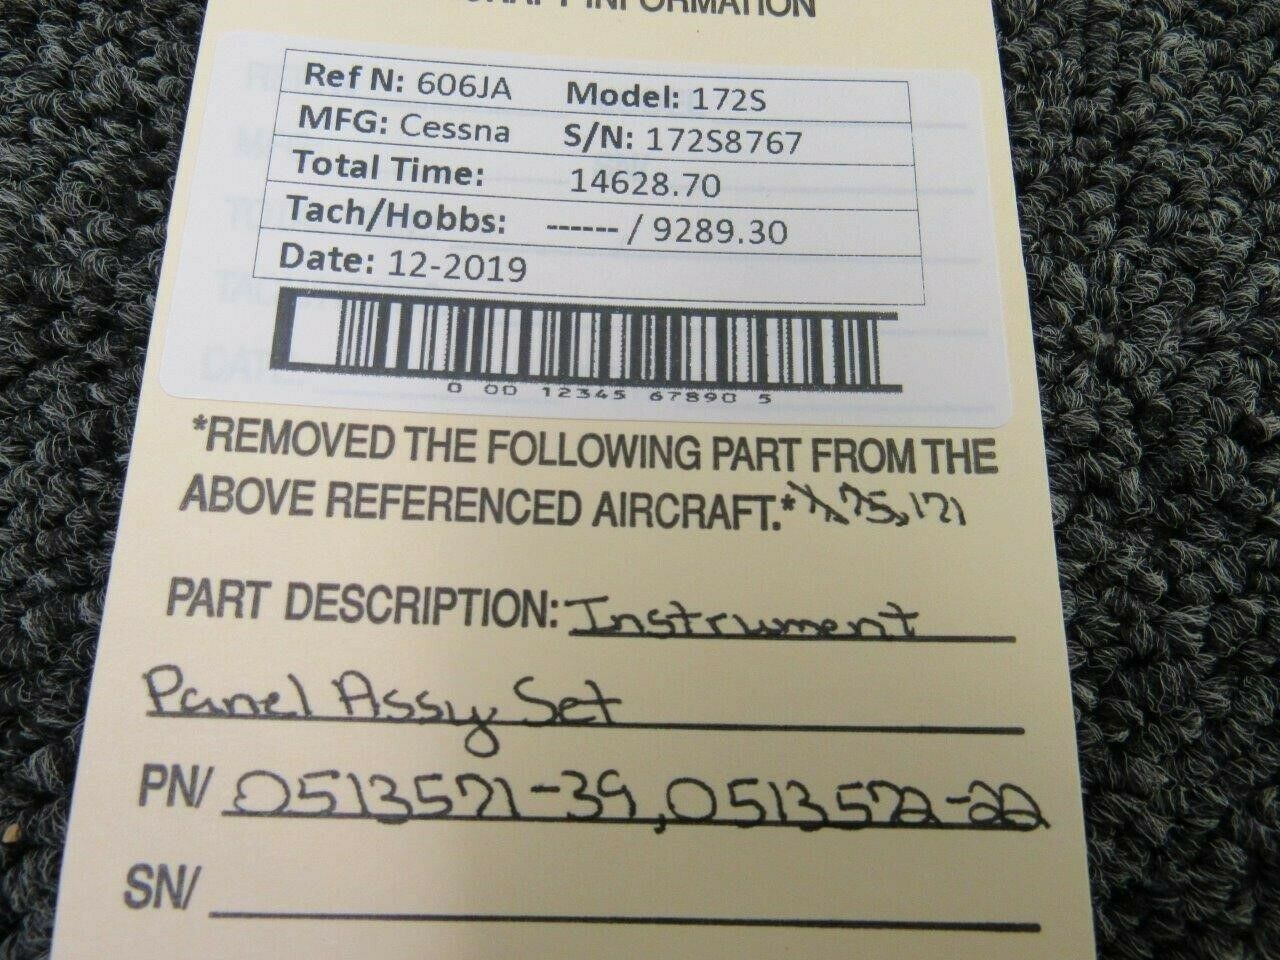 INFORMATION
Ref N: 606JA Model: 172S
MFG: Cessna S/N: 172S8767
Total Time: 14628.70
Tach/Hobbs: ------ / 9289.30
Date: 12-2019
0 00 12345 67890 5
*REMOVED THE FOLLOWING PART FROM THE
ABOVE REFERENCED AIRCRAFT.*
PART DESCRIPTION: Instrument
Panel Assy Set
PN/ 0513571-39, 0513572-22
SN/